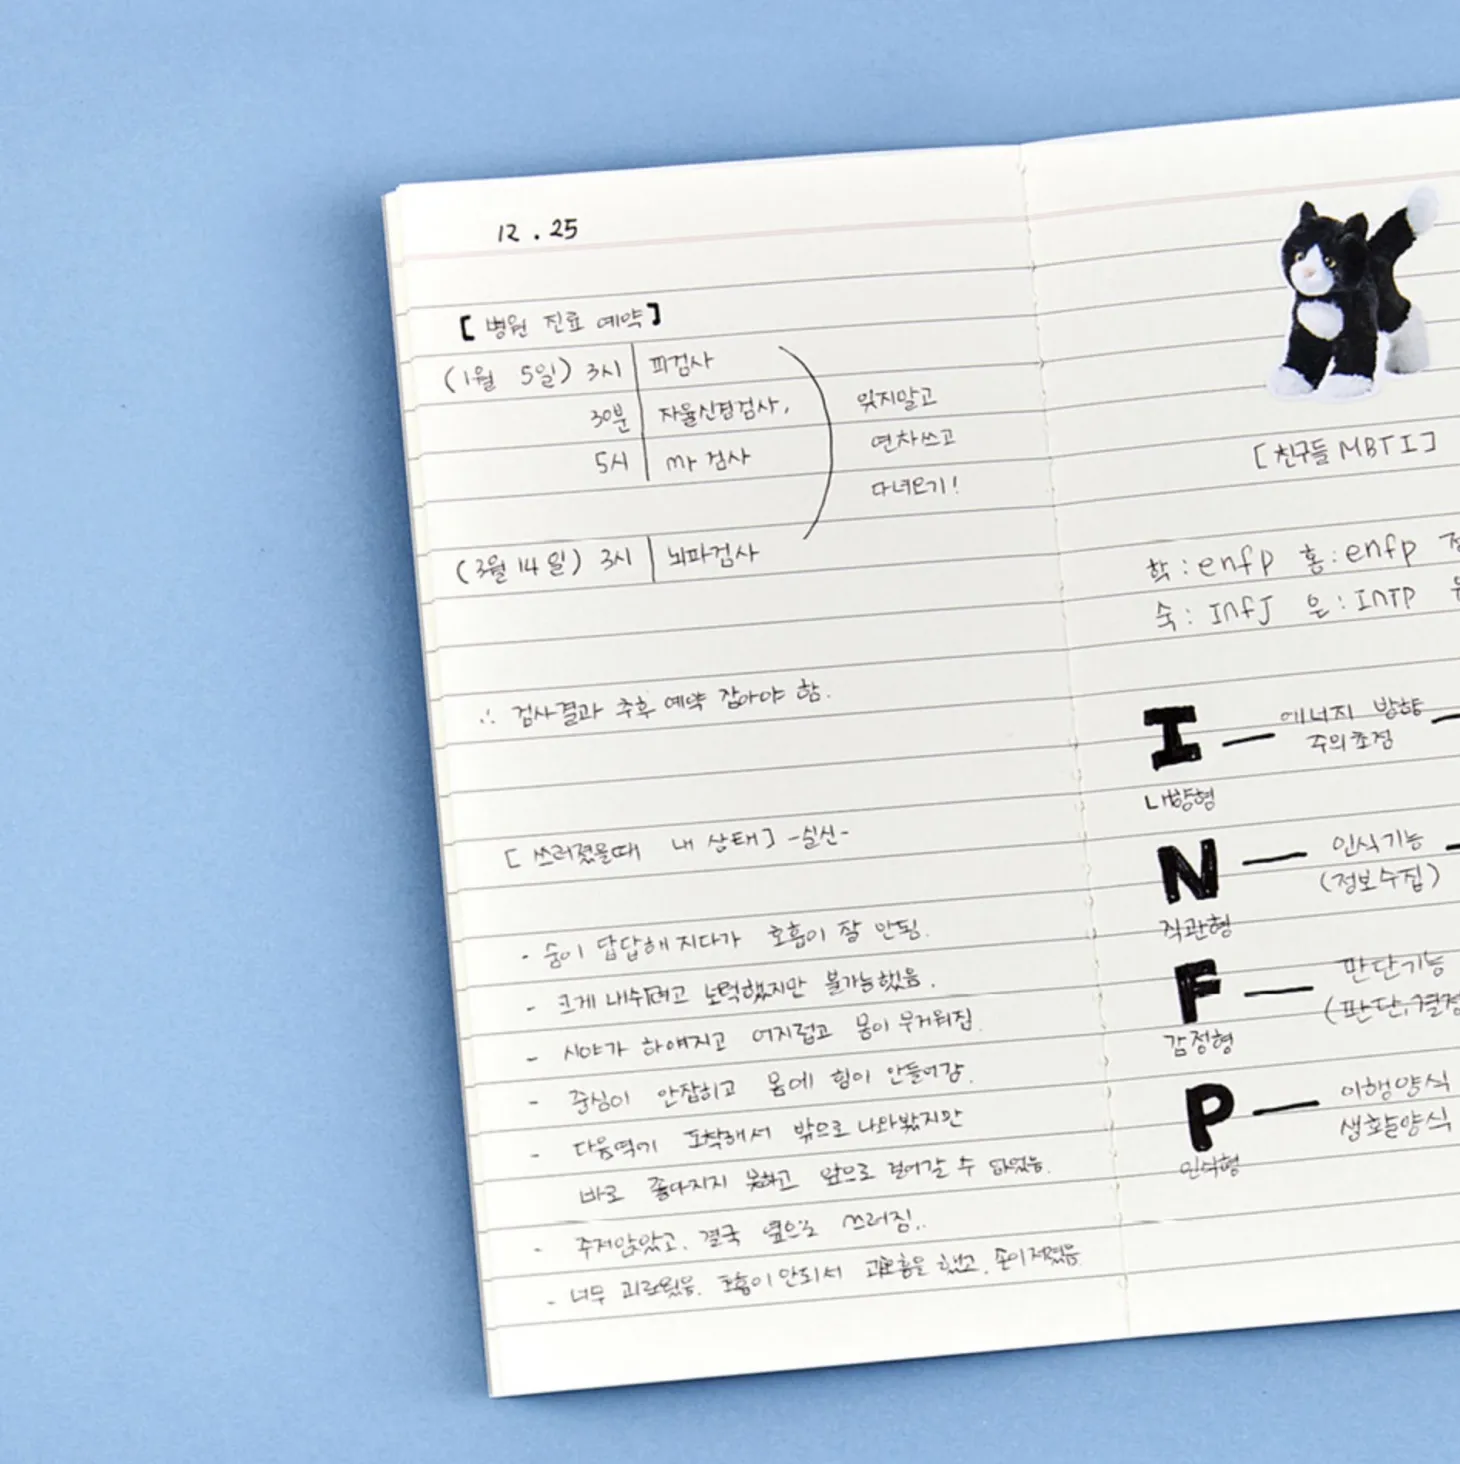 12.25
[병원 진료 예약]
(1월 5일) 3시 | 피검사
30분 | 자율신경검사,
5시 | mr 검사
잊지말고
연차쓰고
다녀오기!
(3월 14일) 3시 | 뇌파검사
∴ 검사결과 추후 예약 잡아야 함.
[쓰러졌을때 내 상태] -실신-
- 숨이 답답해지다가 호흡이 잘 안됨.
- 크게 내쉬려고 노력했지만 불가능했음.
- 시야가 하얘지고 어지럽고 몸이 무거워짐
- 중심이 안잡히고 몸에 힘이 안들어감.
- 다음역에 도착해서 밖으로 나와봤지만
바로 좋아지지 못하고 앞으로 걸어갈 수 없었음.
- 주저앉았고, 결국 옆으로 쓰러짐..
- 너무 괴로웠음. 호흡이 안되서 과호흡을 했고, 손이저렸음
[친구들 MBTI]
학:enfp 홍:enfp
숙:INfJ 은:INTP
I — 에너지 방향 —
주의초점
내향형
N — 인식기능 —
(정보수집)
직관형
F — 판단기능
(판단,결정
감정형
P — 이행양식
생활양식
인식형